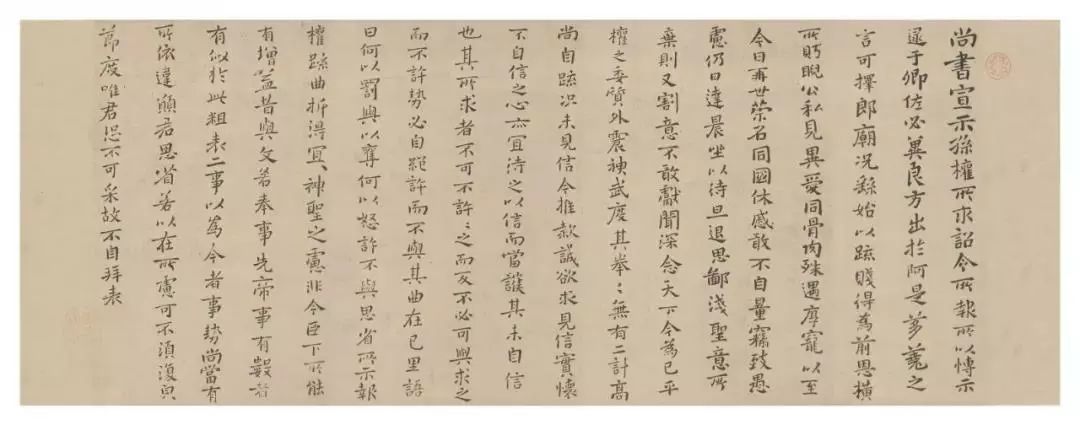 尚書宣示孫權所求詔令所報所以博示
逮于卿佐必冀良方出於阿是芻蕘之
言可擇郎廟況繇始以疏賤得為前恩橫
所眄睨公私見異愛同骨肉殊遇厚寵以至
今日再世榮名同國休慼敢不自量竊致愚
慮仍日達晨坐以待旦退思鄙淺聖意所
棄則又割意不敢獻聞深念天下今為已平
權之委質外震神武度其拳々無有二計高
尚自疏況未見信今推款誠欲求見信實懷
不自信之心亦宜待之以信而當護其未自信
也其所求者不可不許々之而反不必可與求之
而不許勢必自絕許而不與其曲在己里語
曰何以罰與以奪何以怒許不與思省所示報
權疏曲折得宜々神聖之慮非今臣下所能
有增益昔與文若奉事先帝事有數者
有似於此粗表二事以為今者事勢尚當有
所依違願君思省若以在所慮可不須復貌
節度唯君恐不可采故不自拜表